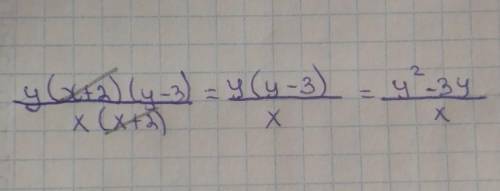 y(x+2)(y-3)/x(x+2) = y(y-3)/x = y²-3y/x